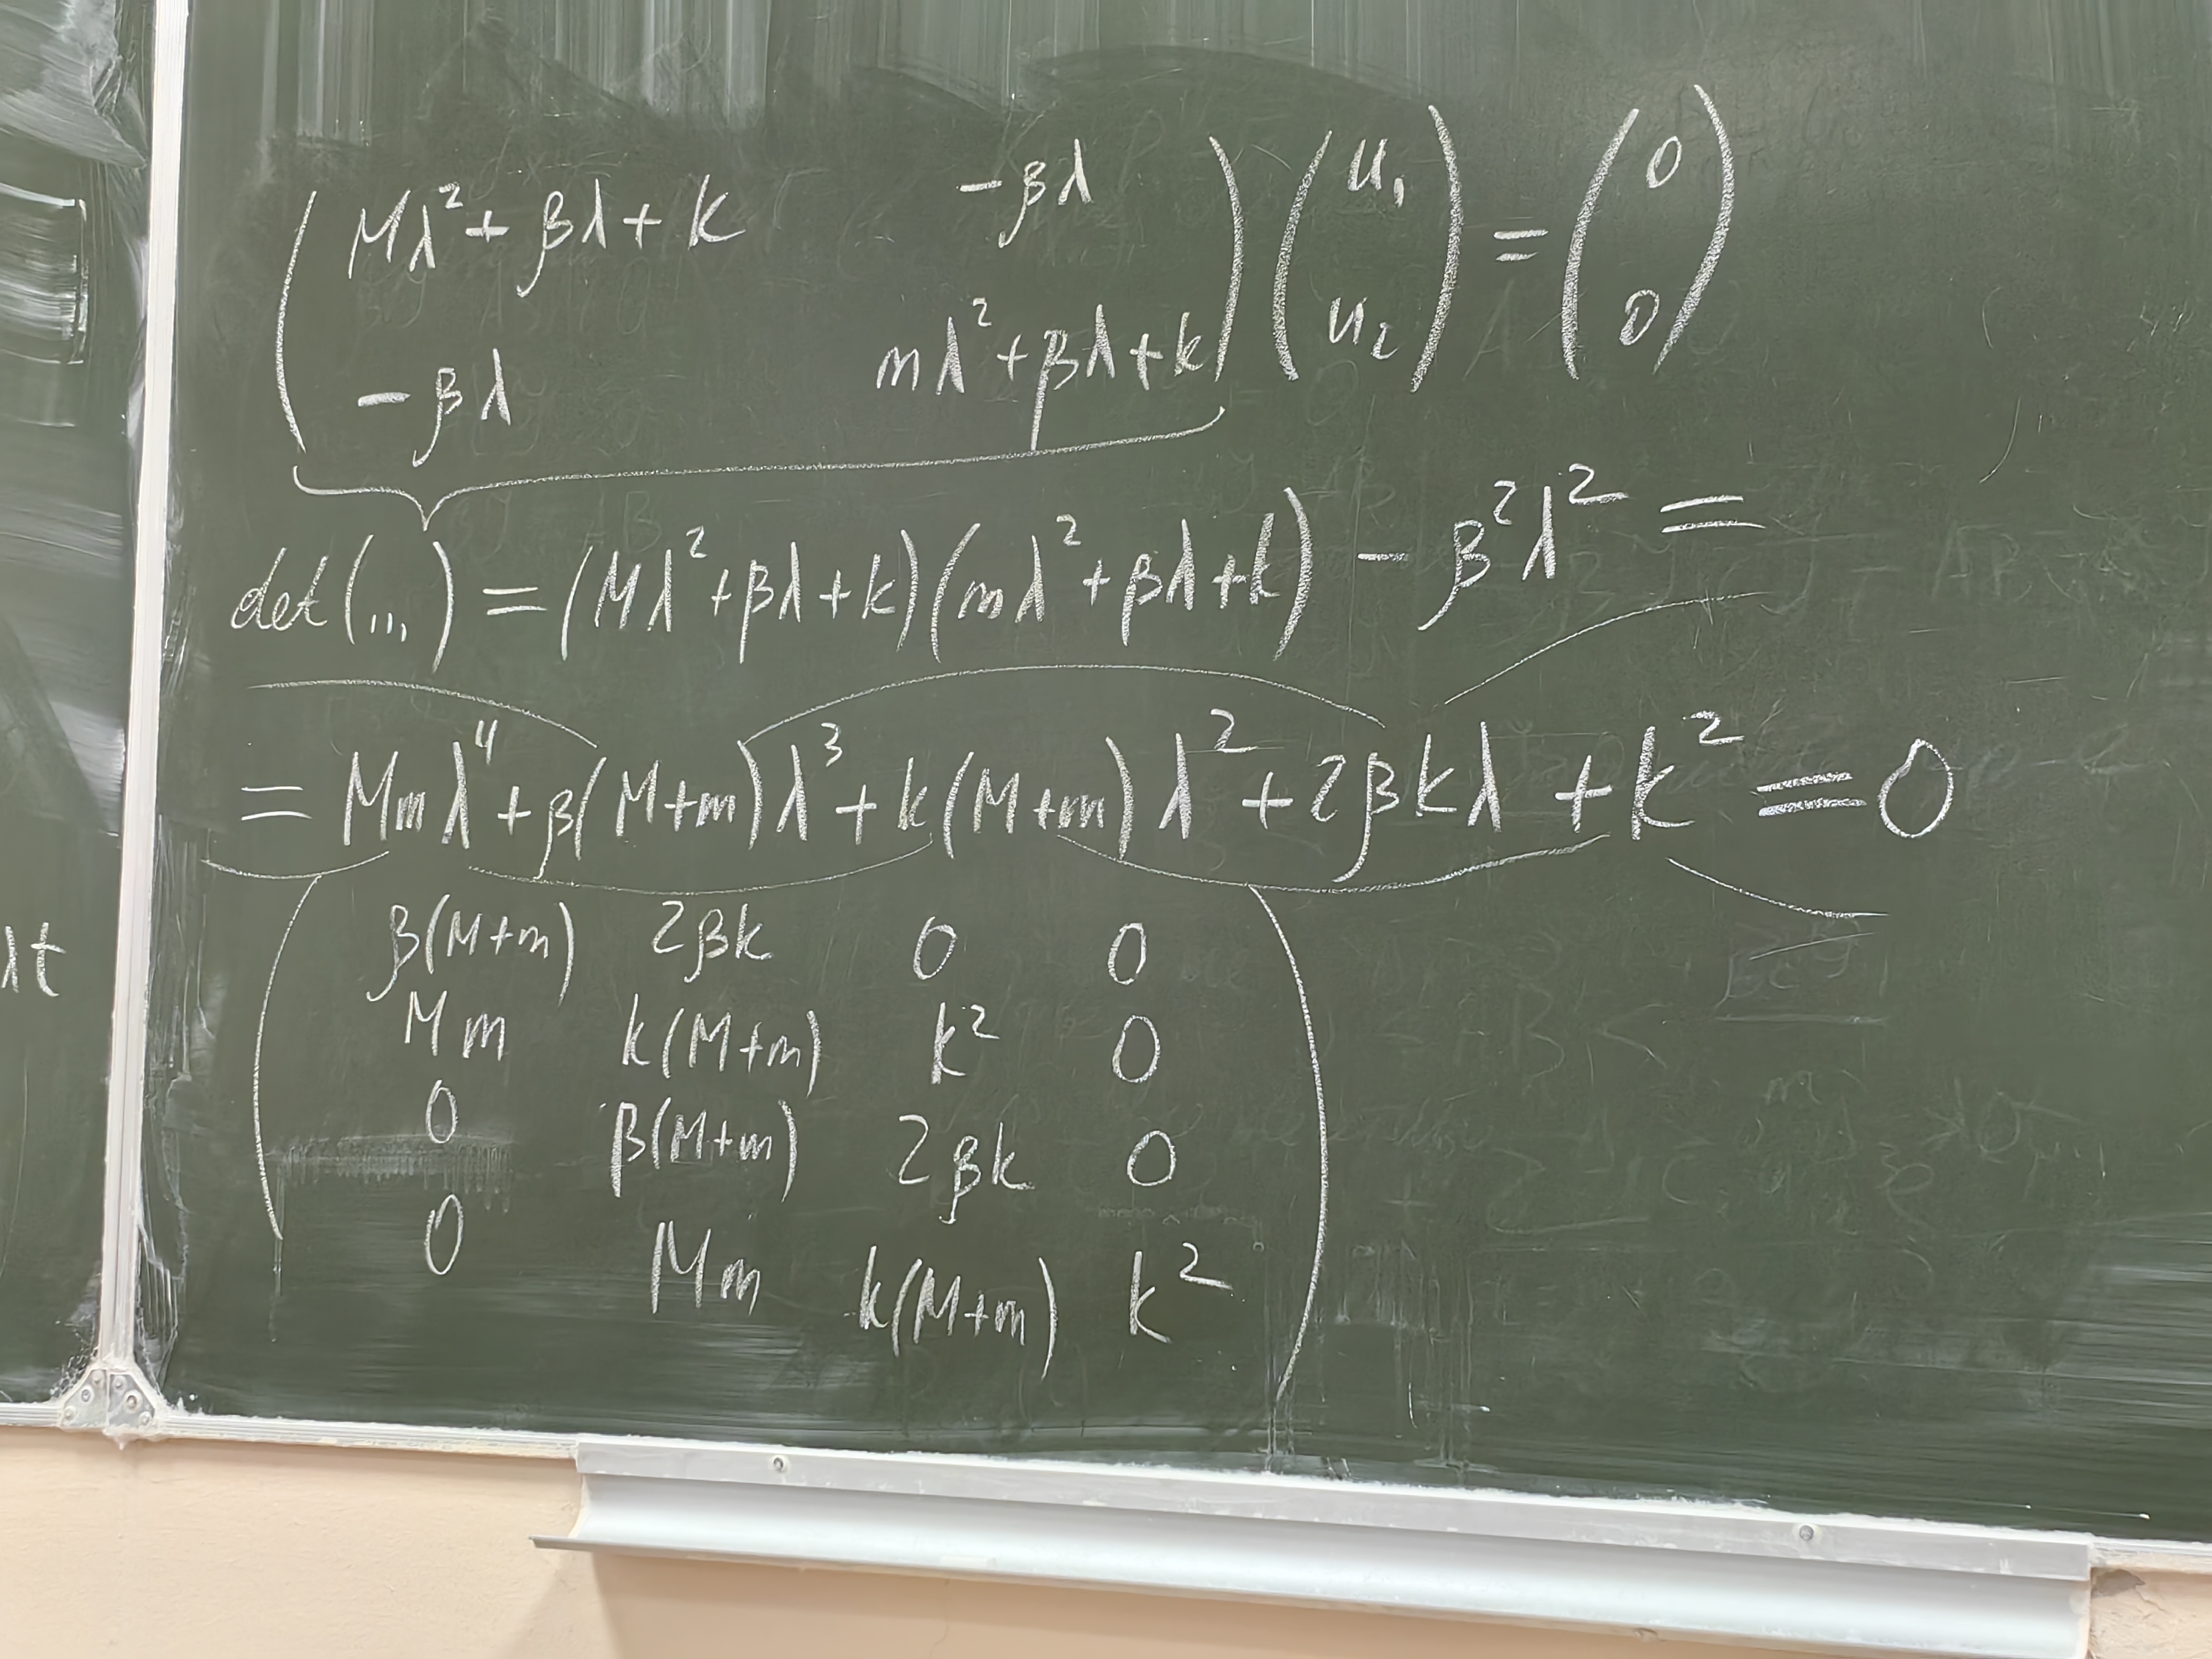 Mλ² + βλ + k   -βλ
-βλ   mλ² + βλ + k
u₁
u₂
=
0
0
det(...) = (Mλ² + βλ + k)(mλ² + βλ + k) - β²λ² =
= Mmλ⁴ + β(M+m)λ³ + k(M+m)λ² + 2βkλ + k² = 0
λt
β(M+m)   2βk   0   0
Mm   k(M+m)   k²   0
0   β(M+m)   2βk   0
0   Mm   k(M+m)   k²